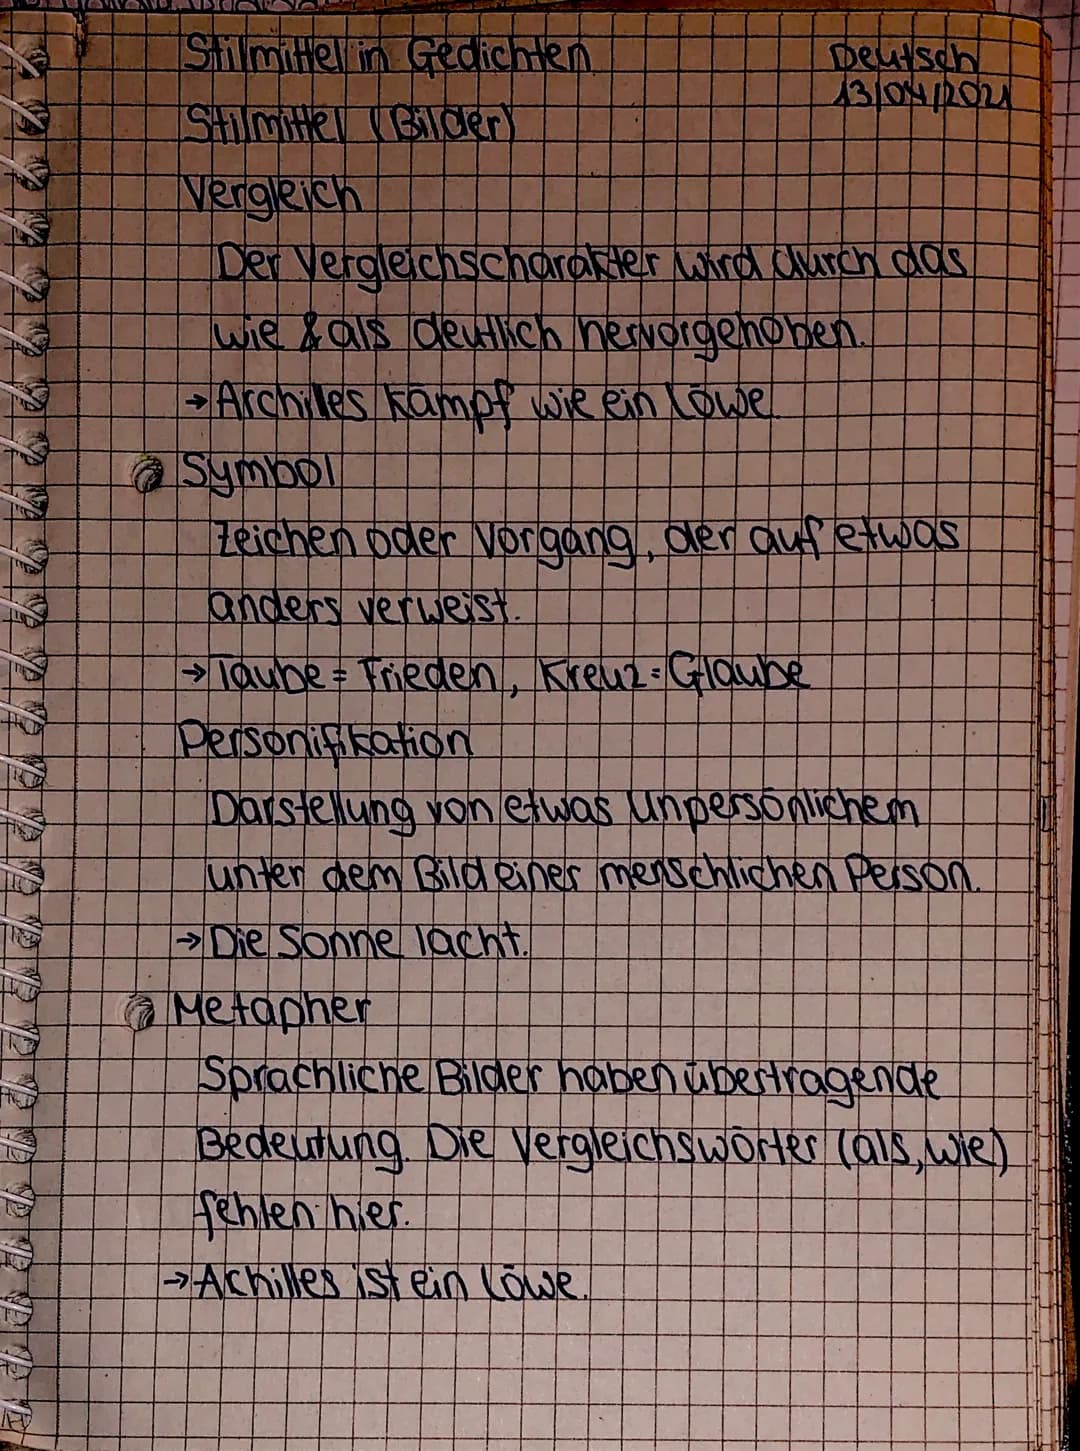 Stilmittel in Gedichten
Deutsch
13/04/2021
Stilmittel (Bilder)
Vergleich
Der Vergleichscharakter wird durch das
wie & als deutlich hervorgehoben.
→ Archilles kämpf wie ein Löwe.
Symbol
Zeichen oder Vorgang, der auf etwas
anders verweist.
→ Taube = Frieden, Kreuz = Glaube
Personifikation
Darstellung von etwas Unpersönlichem
unter dem Bild einer menschlichen Person.
→ Die Sonne lacht.
Metapher
Sprachliche Bilder haben übertragende
Bedeutung. Die Vergleichswörter (als, wie)
fehlen hier.
→ Achilles ist ein Löwe.